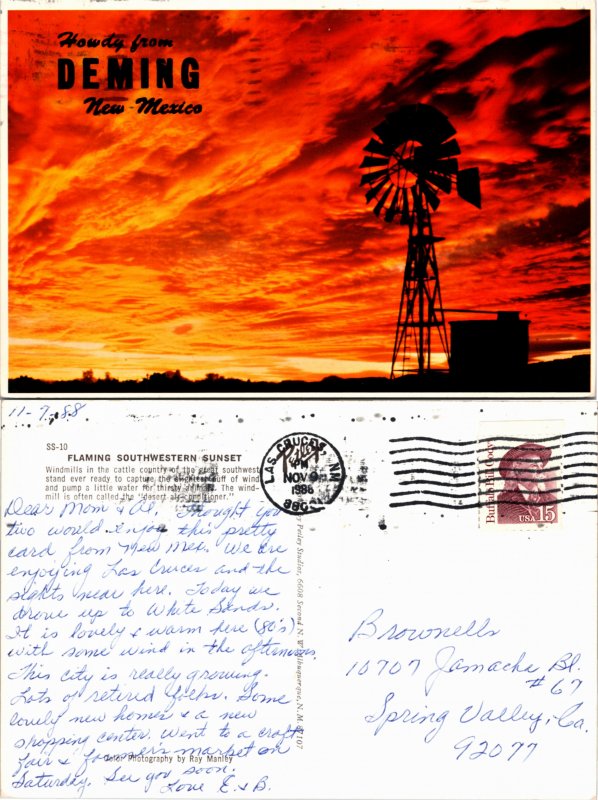 Howdy from
DEMING
New Mexico
11-7-88
SS-10
FLAMING SOUTHWESTERN SUNSET
Windmills in the cattle country of the great southwest
stand ever ready to capture the slightest puff of wind
and pump a little water for thirsty cattle. The wind-
mill is often called the "desert air conditioner."
Dear Mom & Al, Thought you
two would enjoy this pretty
card from New Mex. We are
enjoying Las Cruces and the
sights near here. Today we
drove up to White Sands.
It is lovely & warm here (80's)
with some wind in the afternoons.
This city is really growing.
Lots of retired folks. Some
lovely new homes & a new
shopping center. Went to a craft
fair & farmer's market on
Saturday. See you soon.
Love E. & B.
Color Photography by Ray Manley
Petley Studios, 6608 Second N. W. Albuquerque, N. M. 87107
Petley
LAS CRUCES, NM
PM
NOV 9
1988
Buffalo Bill Cody
USA 15
Brownells
10707 Jamacha Bl.
#67
Spring Valley, Ca.
92077